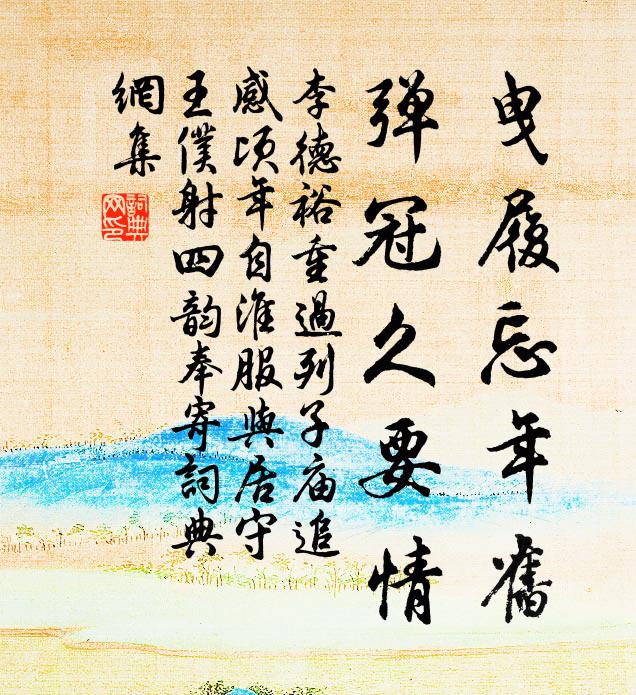 曳履忘年舊
弹冠久要情
李德裕重過列子庙追
感頃年自淮服與居守
王僕射四韵奉寄詞典
網集
詞典
网印